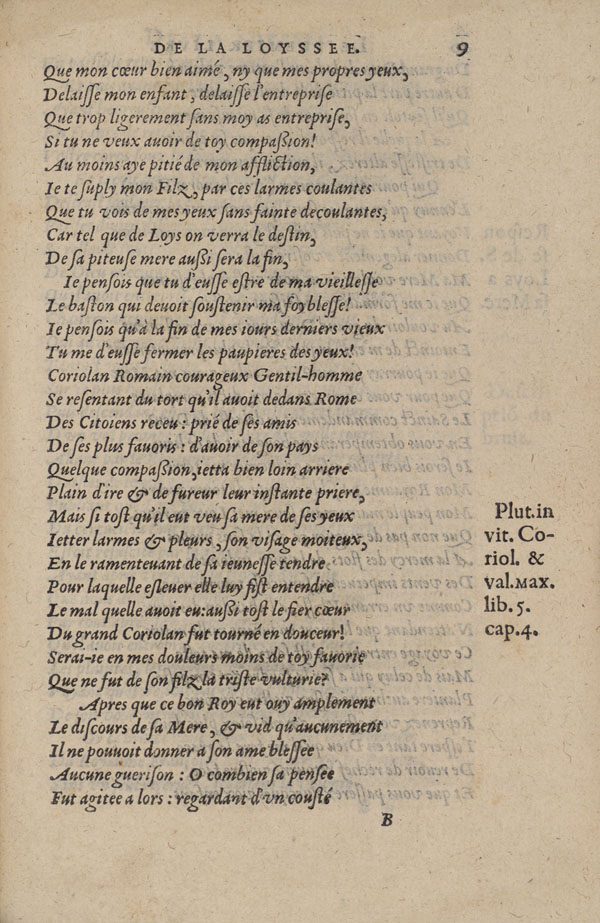 DE LA LOYSSEE. 9
Que mon cœur bien aimé, ny que mes propres yeux,
Delaiſſe mon enfant, delaiſſe l'entrepriſe
Que trop ligerement ſans moy as entrepriſe,
Si tu ne veux auoir de toy compaſsion!
Au moins aye pitié de mon affliction,
Ie te ſuply mon Filz, par ces larmes coulantes
Que tu vois de mes yeux ſans fainte decoulantes,
Car tel que de Loys on verra le deſtin,
De ſa piteuſe mere auſsi ſera la fin,
Ie penſois que tu d'euſſe eſtre de ma vieilleſſe
Le baſton qui deuoit ſouſtenir ma foybleſſe!
Ie penſois qu'à la fin de mes iours derniers vieux
Tu me d'euſſe fermer les paupieres des yeux!
Coriolan Romain courageux Gentil-homme
Se reſentant du tort qu'il auoit dedans Rome
Des Citoiens receu: prié de ſes amis
De ſes plus fauoris: d'auoir de ſon pays
Quelque compaſsion, ietta bien loin arriere
Plain d'ire & de fureur leur inſtante priere,
Mais ſi toſt qu'il eut veu ſa mere de ſes yeux
Ietter larmes & pleurs, ſon viſage moiteux,
En le ramenteuant de ſa ieuneſſe tendre
Pour laquelle eſleuer elle luy fiſt entendre
Le mal quelle auoit eu: auſsi toſt le fier cœur
Du grand Coriolan fut tourné en douceur!
Serai-ie en mes douleurs moins de toy fauorie
Que ne fut de ſon filz la triſte vulturie?
Apres que ce bon Roy eut ouy amplement
Le diſcours de ſa Mere, & vid qu'aucunement
Il ne pouuoit donner a ſon ame bleſſee
Aucune gueriſon: O combien ſa penſee
Fut agitee a lors: regardant d'vn couſté
B
Plut. in
vit. Co-
riol. &
val. MAX.
lib. 5.
cap. 4.